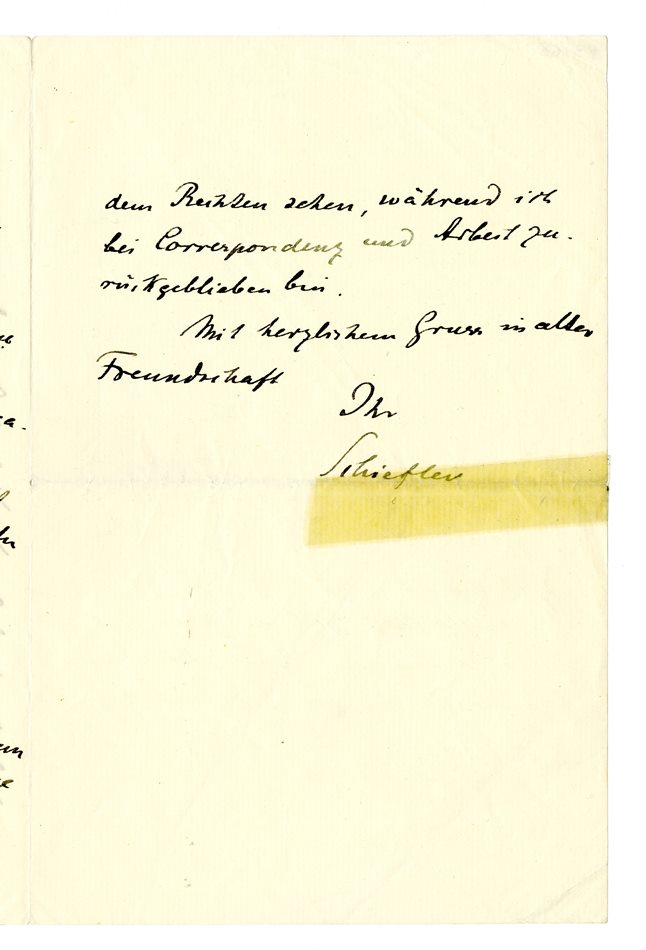 dem Rechten sehen, während ich
bei Correspondenz und Arbeit zu-
rückgeblieben bin.
Mit herzlichem Gruss in alter
Freundschaft
Ihr
Schiefler